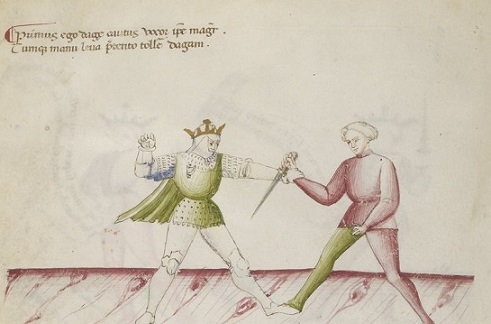 Primus ego dage cautus vocor ip̃e magr̃.
Cumq manu leua p̃tento tolle᷑ dagam.